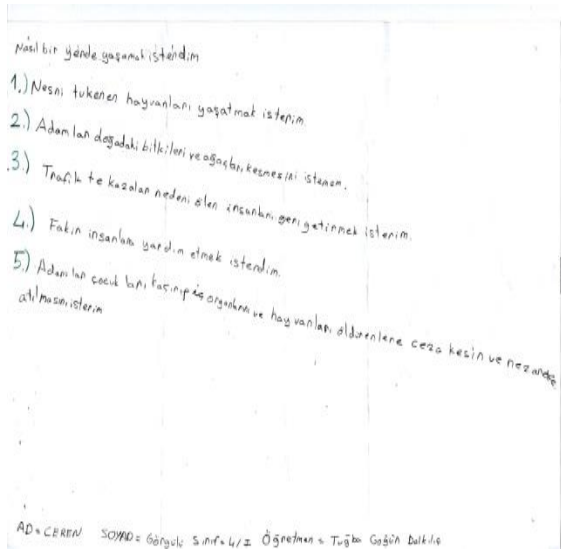 Nasıl bir yerde yaşamak isterdim
1.) Nesni tukenen hayvanları yaşatmak isterim.
2.) Adamlan doğadaki bitkileri ve ağaçları kesmesini istemem.
3.) Trafik te kazalan nedeni ölen insanları geri getirmek isterim.
4.) Fakin insanlara yardım etmek isterdim.
5.) Adamlar çocukları kaçırıp iç organlarını ve hayvanları öldürenlere ceza kesin ve nezarete
atılmasını isterim
AD= CEREN SOYAD= Görgülü Sınıf= 4/I Öğretmen= Tuğba Gögün Dalkılıç